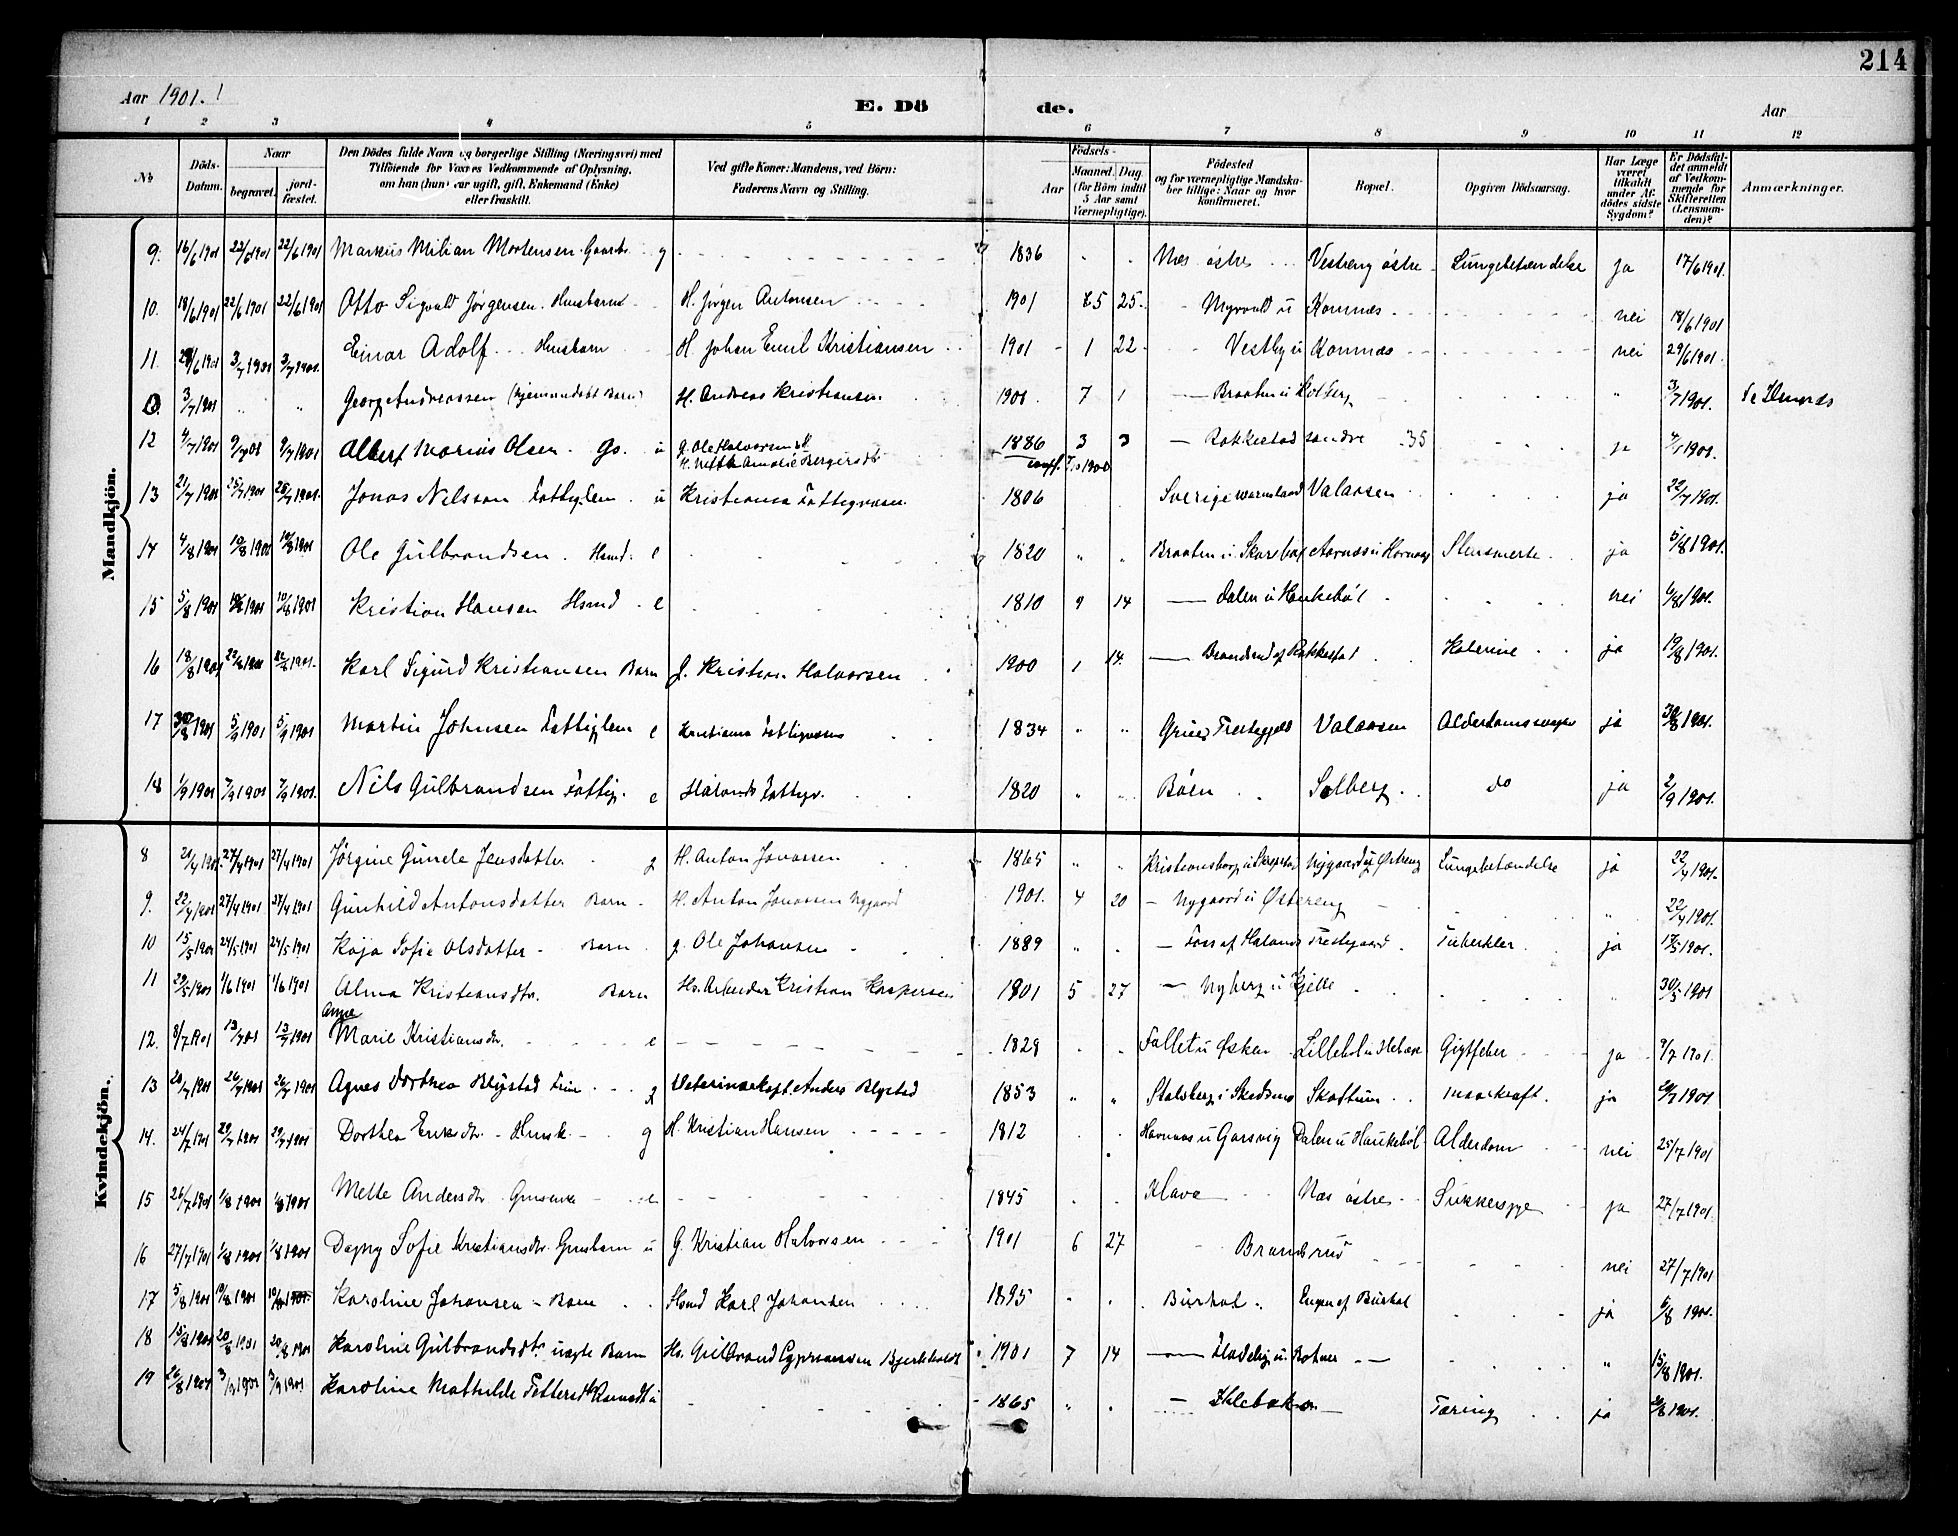 214
Aar 1901.
E. Dö de.
Aar
1 2 3 4 5 6 7 8 9 10 11 12
No
Döds-Datum.
Naar
begravet.
jordfæstet.
Den Dödes fulde Navn og borgerlige Stilling (Næringsvei) med Tilföiende for Voxnes Vedkommende af Oplysning, om han (hun) var ugift, gift, Enkemand (Enke) eller fraskilt.
Ved gifte Koner: Mandens, ved Börn: Faderens Navn og Stilling.
Födsels-
Aar
Maaned. Dag
(for Börn indtil 5 Aar samt Værnepligtige).
Födested og for værnepligtige Mandskaber tillige: Naar og hvor konfirmeret.
Bopæl.
Opgiven Dödsaarsag.
Har Læge været tilkaldt under Afdödes sidste Sygdom?
Er Dödsfaldet anmeldt af Vedkommende for Skifteretten (Lensmanden)?
Anmærkninger.
Mandkjön.
9. 16/6 1901 22/6 1901 22/6 1901 Markus Milian Mortensen Gaardbr. g 1836 Næs østre Vestreng østre Lungebetændelse ja 17/6 1901.
10. 18/6 1901 22/6 1901 22/6 1901 Otto Sigvald Jørgensen. Husbarn H. Jørgen Antonsen 1901 25. Myrvold u Komnæs nei 18/6 1901
11. 3/7 1901 3/7 1901. Einar Adolf Husbarn H. Johan Emil Kristiansen 1901 1 22 Vestby u Komnæs nei 29/6 1901.
3/7 1901 " " Georg Andreassen H. Andreas Kristiansen. 1901 7 1 Braaten u " 3/7 1901.
12 4/7 1901 9/7 1901 9/7 1901 Albert Marius Olsen. Gs. u G. Ole Halvorsen 1886 3 3 Rakkestad søndre 35 ja 1901.
konf. 1900
13 21/7 1901 25/7 1901 25/7 1901. Jonas Nilsson Fattiglem u Kristiania Fattigvæsen. 1806 Sverige Warmland Valaasen ja 22/7 1901.
14 4/8 1901 10/8 1901 10/8 1901 Ole Gulbrandsen. Husmd. e 1820 " " Braaten u. ja 5/8 1901.
15 5/8 1901 10/8 1901 10/8 1901 Kristian Hansen Husmd. e 1810 9 14 Dalen u Haukebøl nei 6/8 1901.
16 18/8 1901 22/8 1901 22/8 1901. Karl Sigurd Kristiansen Barn G. Kristian Halvorsen 1900 1 14. Brandsrud af Rakkestad Kolerine ja 19/8 1901.
17 30/8 1901 5/9 1901 5/9 1901 Martin Johnsen Fattiglem e Kristiania Fattigvæsen 1834 " " Grues Prestegjeld Valaasen ja 30/8 1901.
18 1/9 1901 7/9 1901 7/9 1901. Nils Gulbrandsen Fattig. e Hølands Fattigv. 1820 " Bøen Solberg do ja 2/9 1901.
Kvindekjön.
8 1901 27/4 1901 27/4 1901 Jørgine Gunele Jensdatter g H. Anton Jonassen 1865 " " Kristiansborg u Lungebetændelse ja 22/4 1901.
9. 22/4 1901 27/4 1901 27/4 1901 Gunhild Antonsdatter Barn H. Anton Jonassen Nygaard 1901. 4 20 Nygaard u Østereng " 22/4 1901.
10 15/5 1901 24/5 1901 24/5 1901 Kaja Sofie Olsdatter Barn g. Ole Johansen 1889 " Foss af Hølands Prestegaard Tuberkler. ja 17/5 1901.
11 29/5 1901 1/6 1901 1/6 1901 Alma Kristiansdtr. Barn Hs. Arbeider Kristian Kaspersen 1901 5 27 Nyberg u Kjelle 30/5 1901
12. 8/7 1901 13/7 1901 13/7 1901 Anne Marie Kristiansdtr. e 1829 Fallet u Øsken Gigtfeber ja 9/7 1901.
13 20/7 1901 26/7 1901 26/7 1901 Agnes Dorthea Blystad Frue g Veterinærkapt. Anders Blystad 1853 " " Stalsberg i Skedsmo Skattum ja 1901
14. 24/7 1901 29/7 1901 29/7 1901 Dorthea Eriksdtr. Husk. g H. Kristian Hansen 1812 Havnaas u Garsvig Dalen u Haukebøl Alderdom nei 25/7 1901
15 26/7 1901 1/8 1901 1/8 1901 Mette Andersdtr. e 1845 Kløve Næs østre Sukkersyge ja 27/7 1901.
16 27/7 1901 1/8 1901 1/8 1901 Dagny Sofie Kristiansdtr. Gmsbarn u G. Kristian Halvorsen 1901 6 27 Brandsrud nei 27/7 1901
17 5/8 1901 10/8 1901 10/8 1901. Karoline Johansen Barn Husmd Karl Johansen 1895 Burhol Engen af Burhol ja 6/8 1901.
18 15/8 1901 20/8 1901 20/8 1901 Karoline Gulbrandsdtr uægte Barn Hs. Gulbrand 1901 7 14 " 15/8 1901.
19 26/8 1901 3/9 1901 3/9 1901 Karoline Mathilde u 1865 " Ihlebæk Tæring ja 1901.